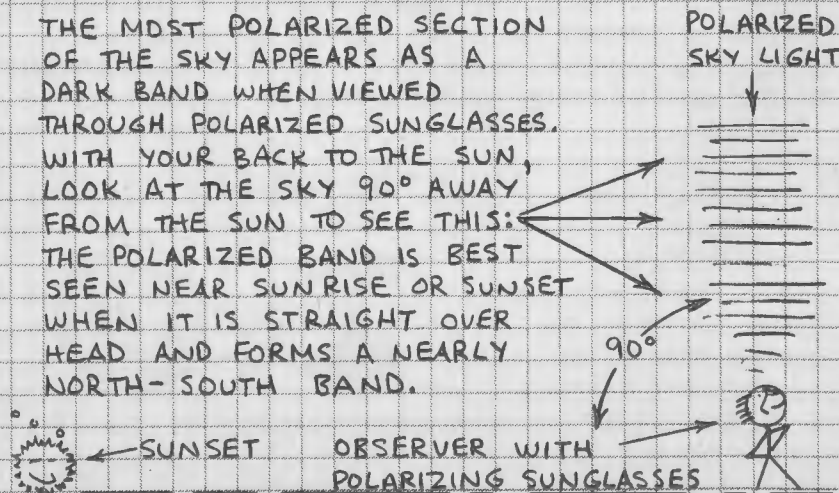 THE MOST POLARIZED SECTION
OF THE SKY APPEARS AS A
DARK BAND WHEN VIEWED
THROUGH POLARIZED SUNGLASSES.
WITH YOUR BACK TO THE SUN,
LOOK AT THE SKY 90° AWAY
FROM THE SUN TO SEE THIS:
THE POLARIZED BAND IS BEST
SEEN NEAR SUNRISE OR SUNSET
WHEN IT IS STRAIGHT OVER
HEAD AND FORMS A NEARLY
NORTH-SOUTH BAND.
POLARIZED
SKY LIGHT
90°
SUNSET
OBSERVER WITH
POLARIZING SUNGLASSES